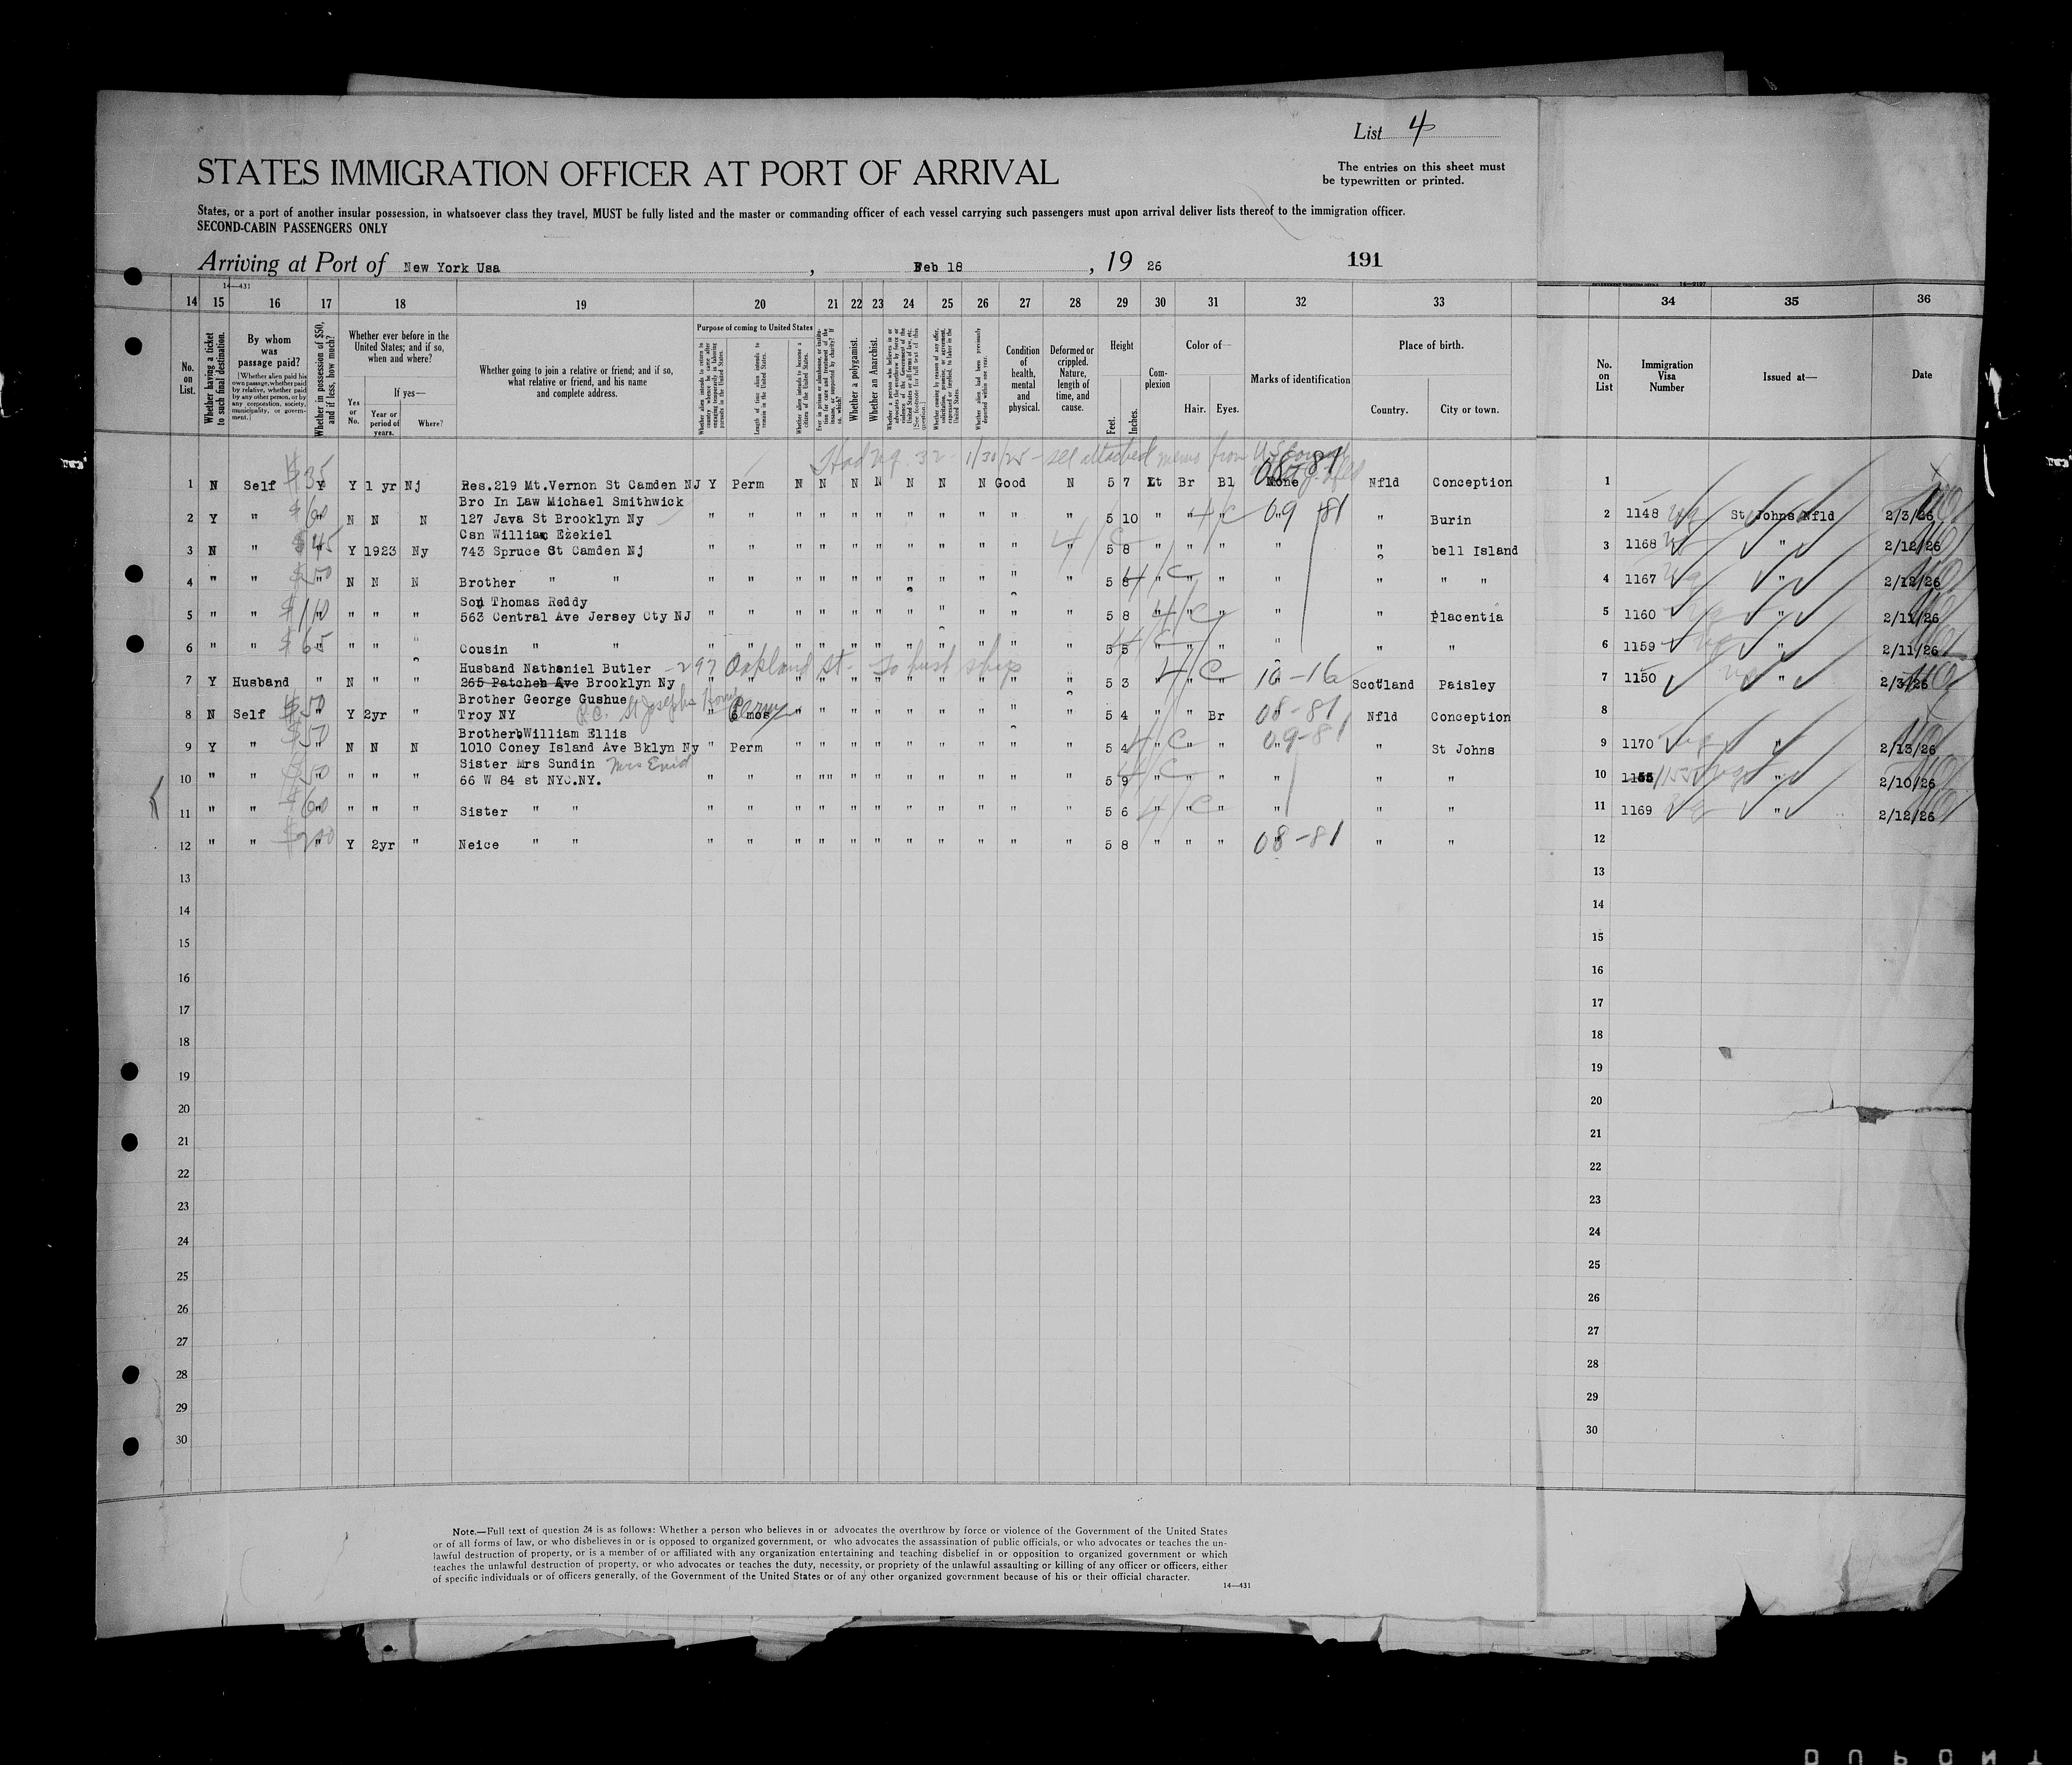 List 4
STATES IMMIGRATION OFFICER AT PORT OF ARRIVAL
The entries on this sheet must
be typewritten or printed.
States, or a port of another insular possession, in whatsoever class they travel, MUST be fully listed and the master or commanding officer of each vessel carrying such passengers must upon arrival deliver lists thereof to the immigration officer.
SECOND-CABIN PASSENGERS ONLY
Arriving at Port of New York Usa , Feb 18 , 19 26 191
14—431
14 15 16 17 18 19 20 21 22 23 24 25 26 27 28 29 30 31 32 33 34 35 36
No. on List.
Whether having a ticket to such final destination.
By whom was passage paid?
Whether in possession of $50, and if less, how much?
Whether ever before in the United States; and if so, when and where?
Yes or No.
If yes—
Year or period of years.
Where?
Whether going to join a relative or friend; and if so, what relative or friend, and his name and complete address.
Purpose of coming to United States
Whether a polygamist.
Whether an Anarchist.
Condition of health, mental and physical.
Deformed or crippled. Nature, length of time, and cause.
Height
Feet. Inches.
Complexion
Color of—
Hair. Eyes.
Marks of identification
Place of birth.
Country. City or town.
No. on List
Immigration Visa Number
Issued at—
Date
1 N Self $35 Y Y 1 yr Nj Res.219 Mt.Vernon St Camden NJ Y Perm N N N N N N N Good N 5 7 Lt Br Bl None 08-81 Nfld Conception 1
Bro In Law Michael Smithwick
2 Y " $60 " N N N 127 Java St Brooklyn Ny " " " " " " " " " " " 5 10 " " " 09 81 " Burin 2 1148 St Johns Nfld 2/3/26
Csn William Ezekiel
3 N " $45 " Y 1923 Ny 743 Spruce St Camden Nj " " " " " " " " " " " 5 8 " " " " " bell Island 3 1168 " 2/12/26
4 " " $50 " N N N Brother " " " " " " " " " " " " " 5 8 " " " " " " " 4 1167 " 2/12/26
Son Thomas Reddy
5 " " $110 " " " " 563 Central Ave Jersey Cty NJ " " " " " " " " " " " 5 8 " " " " " Placentia 5 1160 " 2/11/26
6 " " $65 " " " " Cousin " " " " " " " " " " " " " 5 5 " " " " " " 6 1159 " 2/11/26
Husband Nathaniel Butler - 297 Oakland St-
7 Y Husband " N " " 265 Patchen Ave Brooklyn Ny " " " " " " " " " " " 5 3 " " " 16-16 Scotland Paisley 7 1150 " 2/3/26
Brother George Gushue
8 N Self $50 " Y 2yr " Troy NY R.C. St Josephs " 6 mos " " " " " " " " " 5 4 " " Br 08-81 Nfld Conception 8
Brother William Ellis
9 Y " $50 " N N N 1010 Coney Island Ave Bklyn Ny " Perm " " " " " " " " " 5 4 " " " 09-81 " St Johns 9 1170 " 2/13/26
Sister Mrs Sundin Mrs Enid
10 " " $50 " " " " 66 W 84 st NYC.NY. " " " "" " " " " " " " 5 9 " " " " " " 10 1155 " 2/10/26
11 " " $60 " " " " Sister " " " " " " " " " " " " " 5 6 " " " " " " 11 1169 " 2/12/26
12 " " $200 " Y 2yr " Neice " " " " " " " " " " " " " 5 8 " " " 08-81 " " 12
13 13
14 14
15 15
16 16
17 17
18 18
19 19
20 20
21 21
22 22
23 23
24 24
25 25
26 26
27 27
28 28
29 29
30 30
Note.—Full text of question 24 is as follows: Whether a person who believes in or advocates the overthrow by force or violence of the Government of the United States
or of all forms of law, or who disbelieves in or is opposed to organized government, or who advocates the assassination of public officials, or who advocates or teaches the un-
lawful destruction of property, or is a member of or affiliated with any organization entertaining and teaching disbelief in or opposition to organized government or which
teaches the unlawful destruction of property, or who advocates or teaches the duty, necessity, or propriety of the unlawful assaulting or killing of any officer or officers, either
of specific individuals or of officers generally, of the Government of the United States or of any other organized government because of his or their official character.
14—431